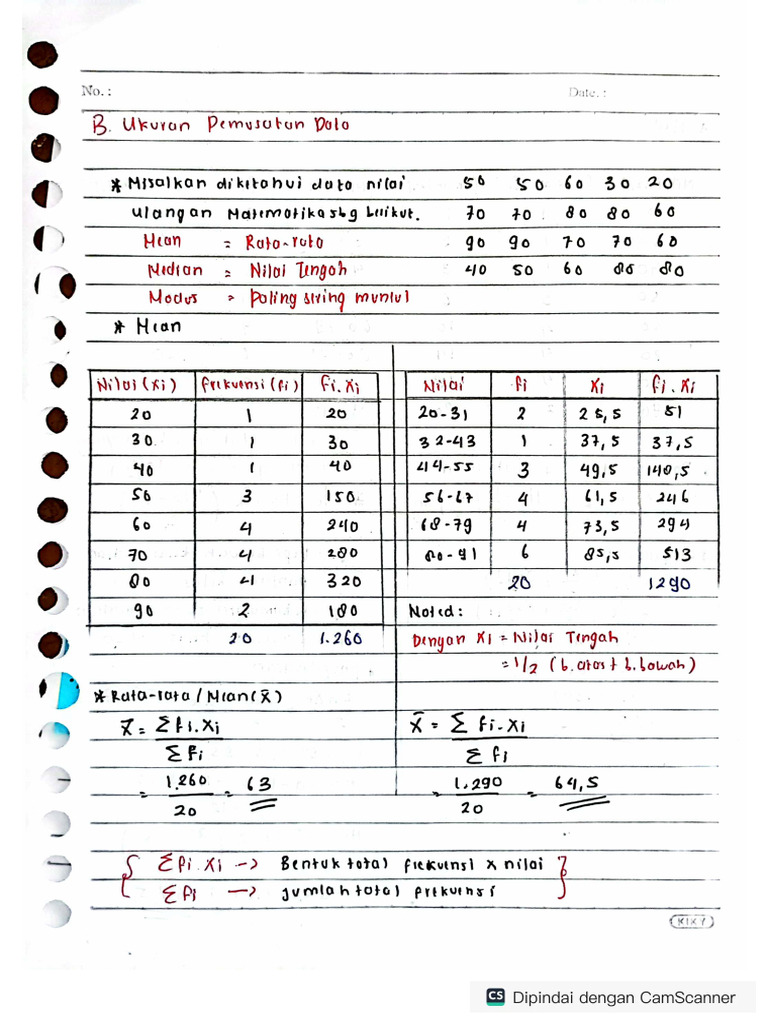 No. :
Date. :
B. Ukuran Pemusatan Data
* Misalkan diketahui data nilai 50 50 60 30 20
ulangan Matematika sbg berikut. 70 70 80 80 60
Mean = Rata-rata 90 90 70 70 60
Median = Nilai Tengah 40 50 60 80 80
Modus = paling sering muncul
* Mean
Nilai (xi) frekuensi (fi) fi.xi Nilai fi xi fi.xi
20 1 20 20-31 2 25,5 51
30 1 30 32-43 1 37,5 37,5
40 1 40 44-55 3 49,5 148,5
50 3 150 56-67 4 61,5 246
60 4 240 68-79 4 73,5 294
70 4 280 80-91 6 85,5 513
80 4 320 20 1290
90 2 180 Noted:
20 1.260 Dengan xi = Nilai Tengah
= 1/2 (b. atas + b. bawah)
* Rata-rata / Mean (x̄)
x̄ = Σ fi.xi x̄ = Σ fi.xi
Σ fi Σ fi
= 1.260 = 63 = 1.290 = 64,5
20 20
{ Σfi.xi -> Bentuk total frekuensi x nilai }
{ Σfi -> jumlah total frekuensi }
KIKY
CS Dipindai dengan CamScanner